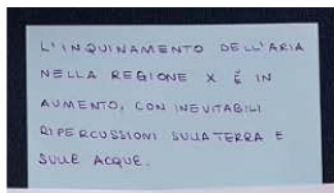 L'INQUINAMENTO DELL'ARIA
NELLA REGIONE X È IN
AUMENTO, CON INEVITABILI
RIPERCUSSIONI SULLA TERRA E
SULLE ACQUE.